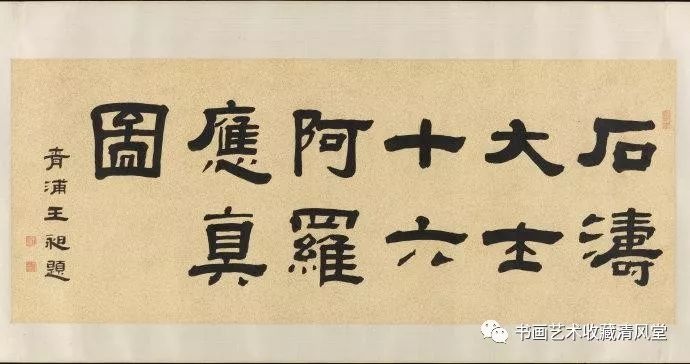 石濤
大士
十六
阿羅
應真
圖
青浦王昶題
书画艺术收藏清风堂